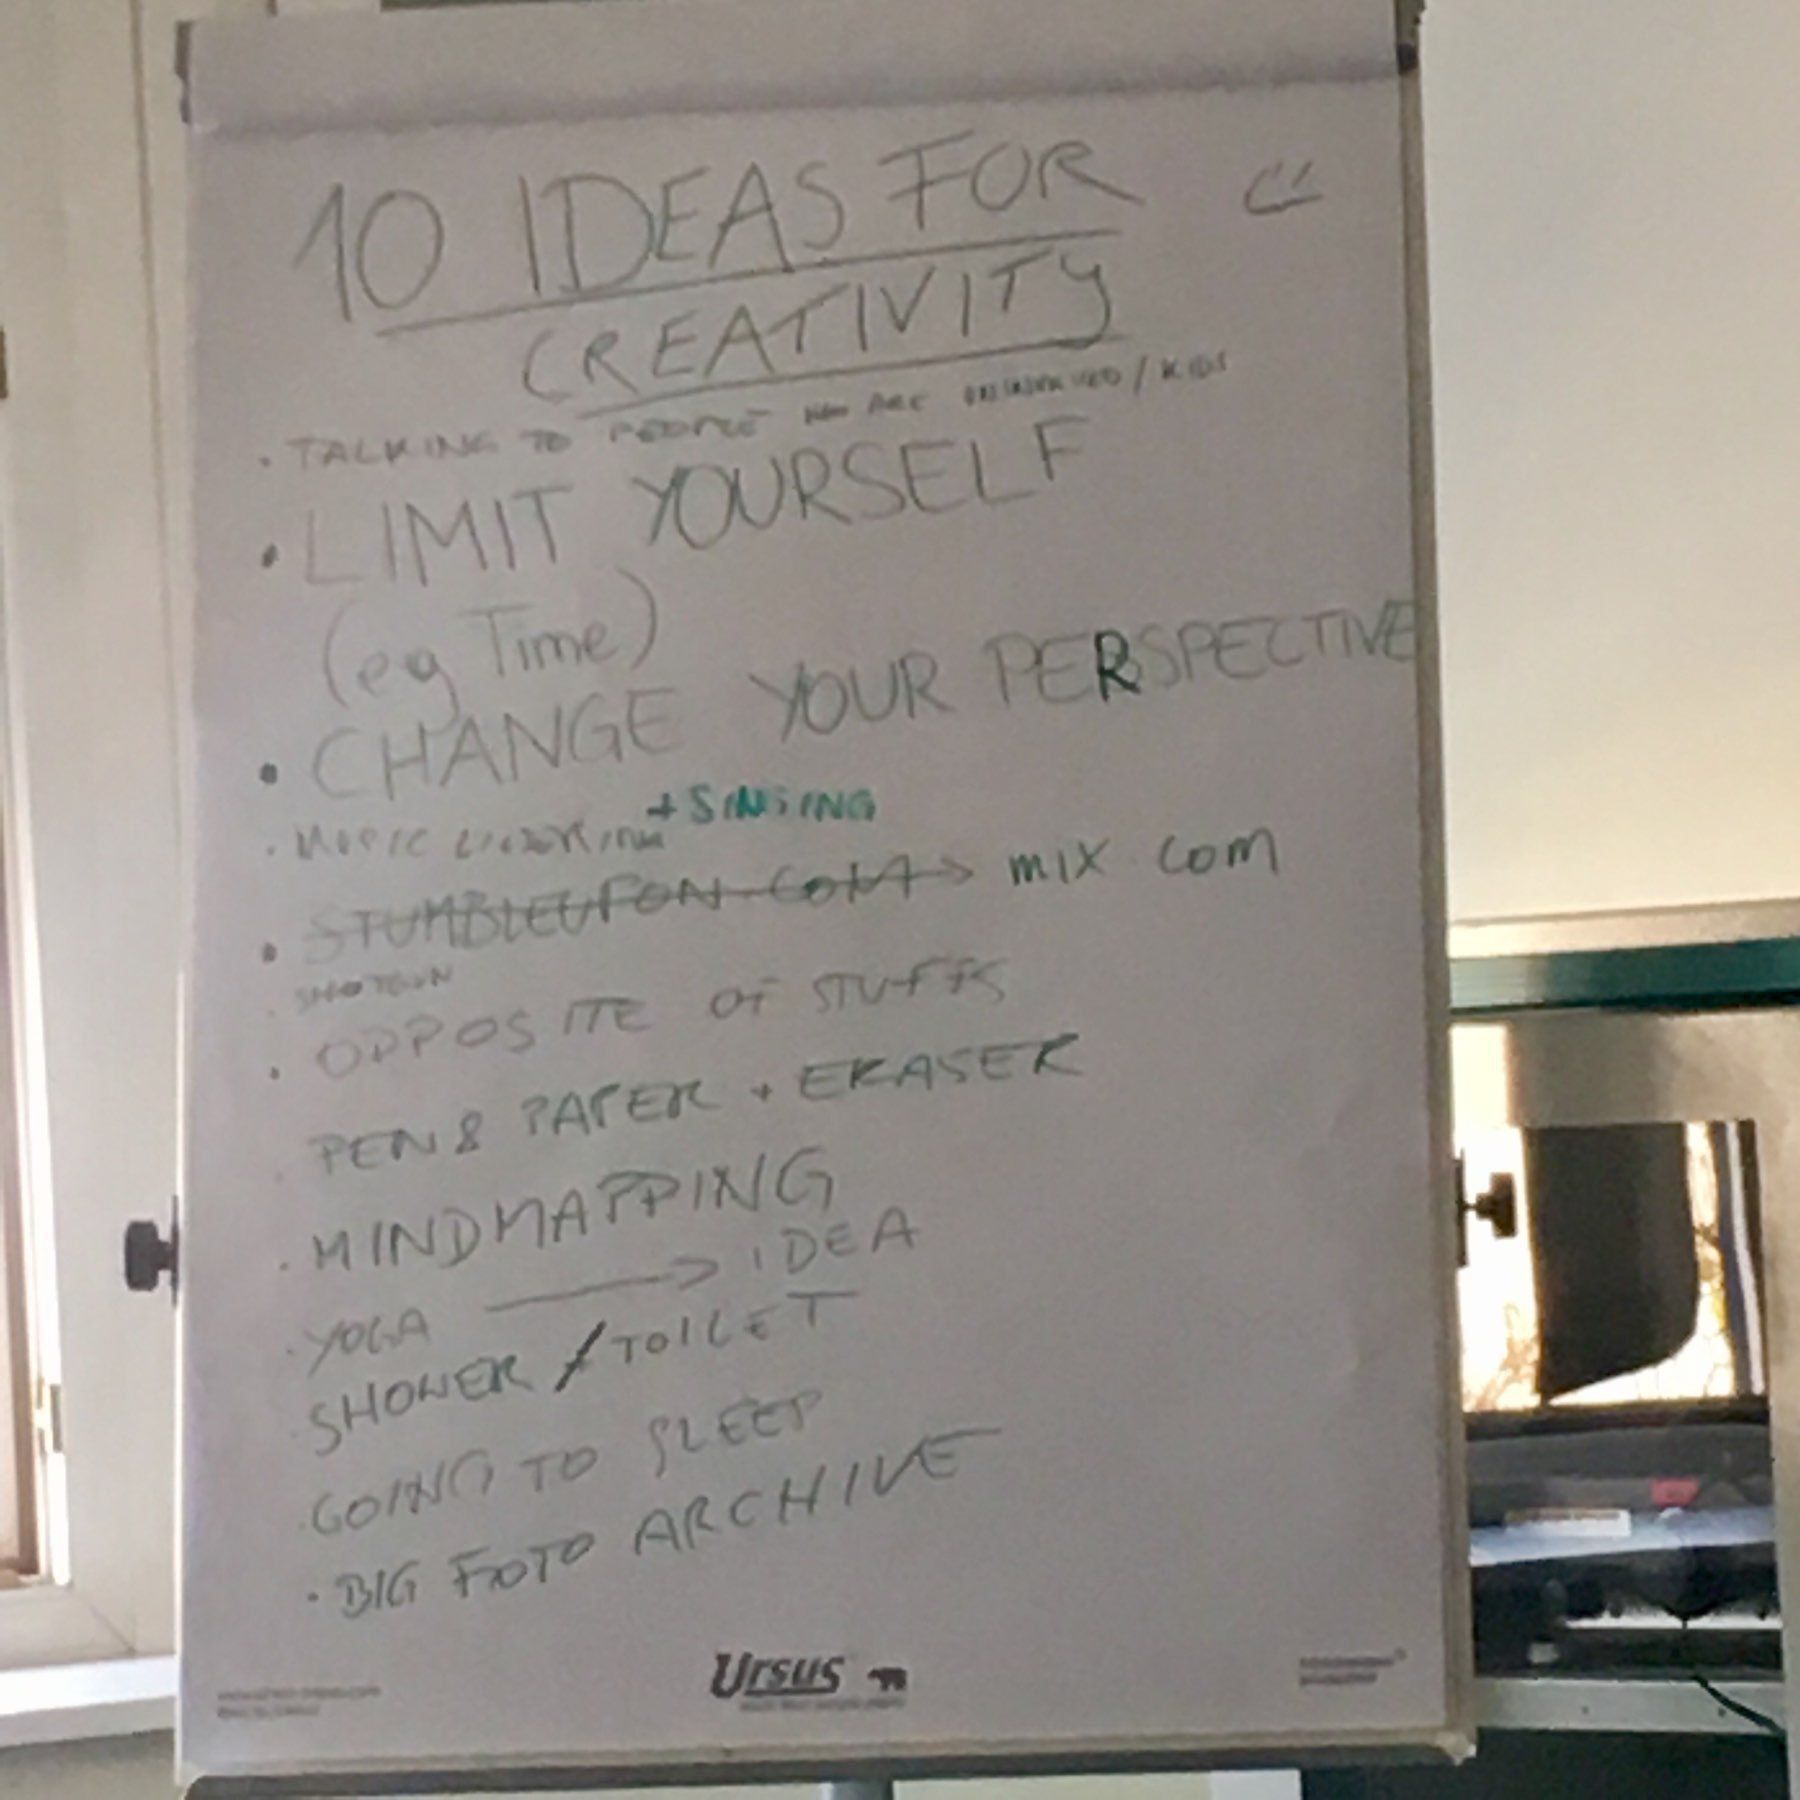 10 IDEAS FOR
CREATIVITY
• TALKING TO PEOPLE WHO ARE UNINVOLVED / KIDS
• LIMIT YOURSELF
(eg Time)
• CHANGE YOUR PERSPECTIVE
• MUSIC + SINGING
• STUMBLEUPON.COM → mix.com
• SHOTGUN
• OPPOSITE OF STUFFS
• PEN & PAPER + ERASER
• MINDMAPPING
• YOGA → IDEA
• SHOWER / TOILET
• GOING TO SLEEP
• BIG FOTO ARCHIVE
Ursus